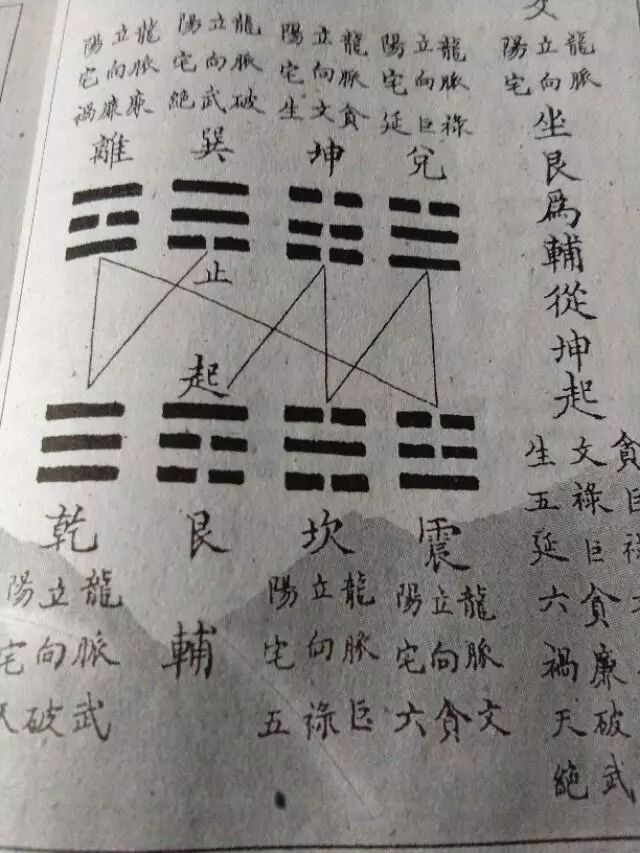 龍脈
立向
陽宅
坐艮爲輔從坤起
貪巨
文祿巨貪廉破武
生五延六禍天絕
龍脈祿
立向巨
陽宅延
兌
龍脈貪
立向文
陽宅生
坤
龍脈破
立向武
陽宅絕
巽
龍脈廉
立向廉
陽宅禍
離
止
起
震
龍脈文
立向貪
陽宅六
坎
龍脈巨
立向祿
陽宅五
艮
輔
乾
龍脈武
立向破
陽宅天